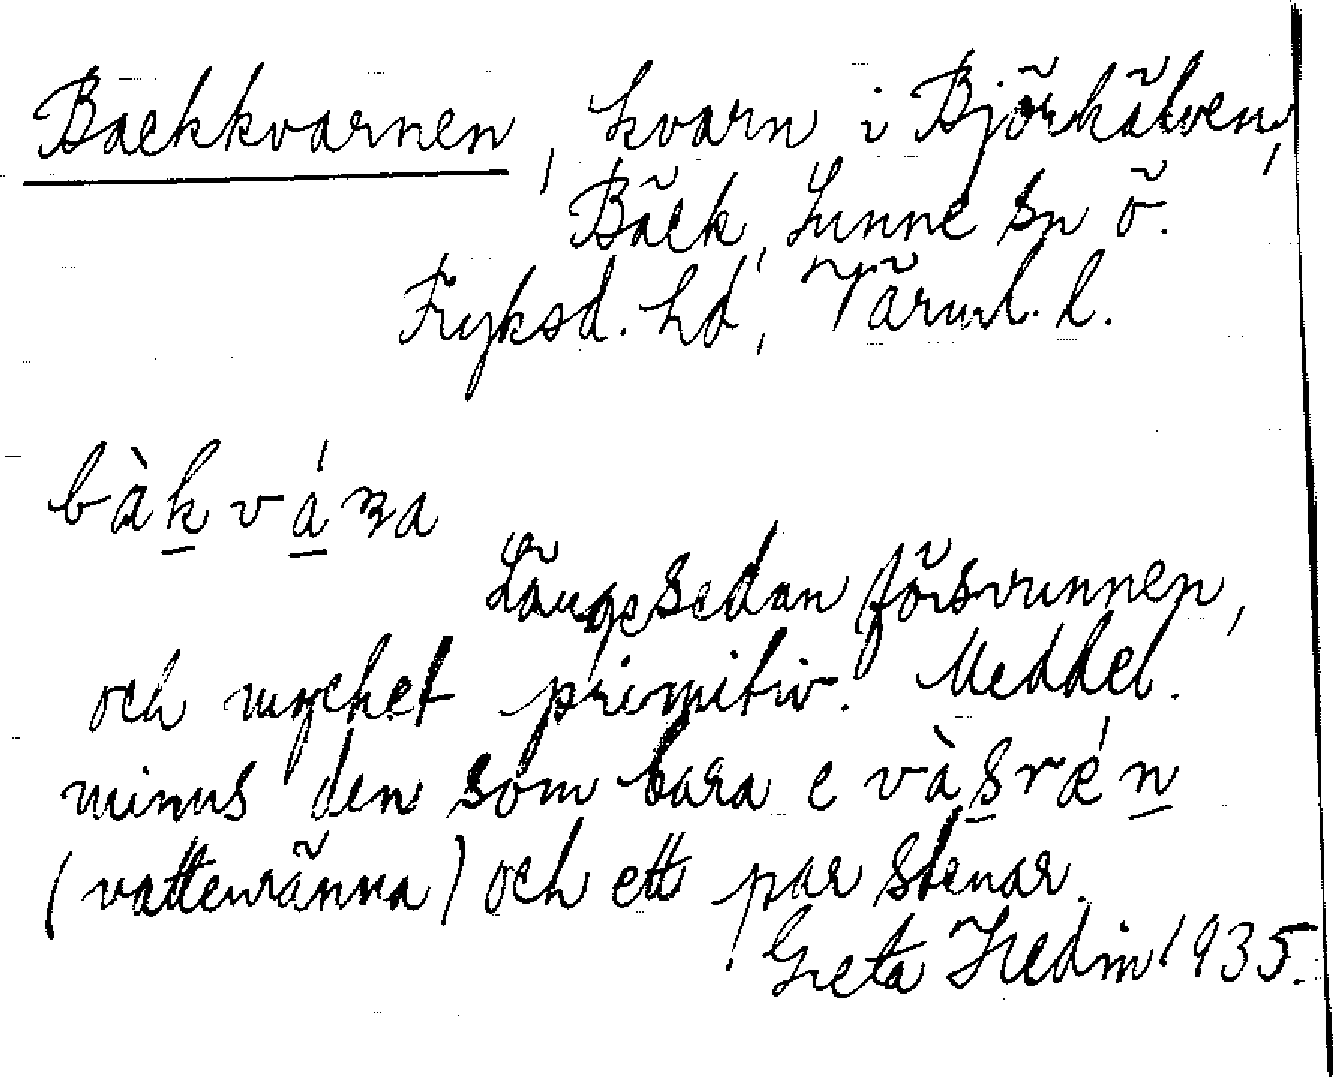 Backkvarnen, kvarn i Björkälven,
Bäck, Sunne sn ö.
Fryksd. hd, Värml. l.
bàkváʀa
Länge sedan försvunnen,
och mycket primitiv. Meddel.
minns den som bara e vàsrǽn
(vattenränna) och ett par stenar.
Greta Hedin 1935.